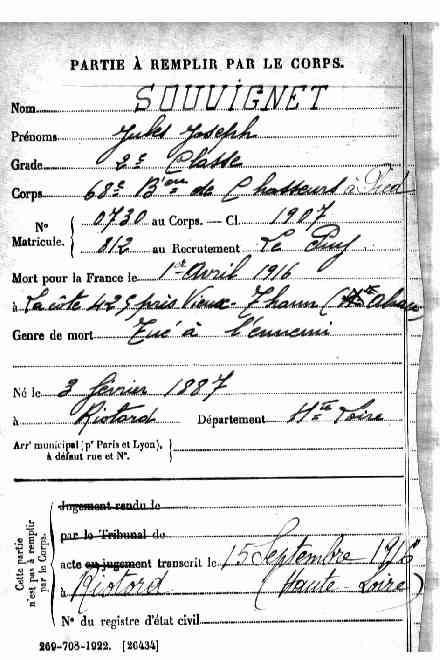 PARTIE À REMPLIR PAR LE CORPS.
Nom SOUVIGNET
Prénoms Jules Joseph
Grade 2e Classe
Corps 68e Bien de Chasseurs à Pied
N° Matricule. { 0730 au Corps. — Cl. 1907
812 au Recrutement Le Puy
Mort pour la France le 1er Avril 1916
à La côte 425 près Vieux-Thann (Hte Alsace
Genre de mort Tué à l'ennemi
Né le 3 février 1887
à Riotord Département Hte Loire
Arrt municipal (pr Paris et Lyon),
à défaut rue et N°.
Cette partie n'est pas à remplir par le Corps.
Jugement rendu le
par le Tribunal de
acte ou jugement transcrit le 15 Septembre 1916
à Riotord (Haute-Loire)
N° du registre d'état civil
269-708-1922. [26434]